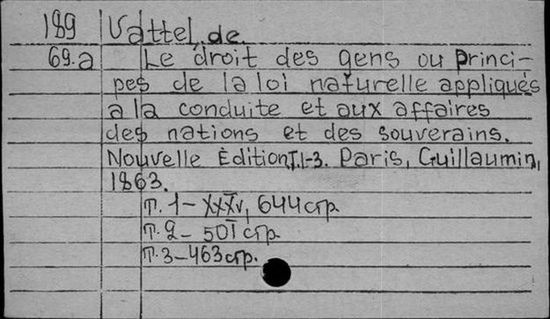 189 Vattel, de.
69.a Le droit des gens ou princi-
pes de la loi naturelle appliqués
a la conduite et aux affaires
des nations et des souverains.
Nouvelle Édition, T.1-3. Paris, Guillaumin,
1863.
т. 1 – XXXV, 644 стр
т. 2 – 501 стр
т. 3 – 463 стр.